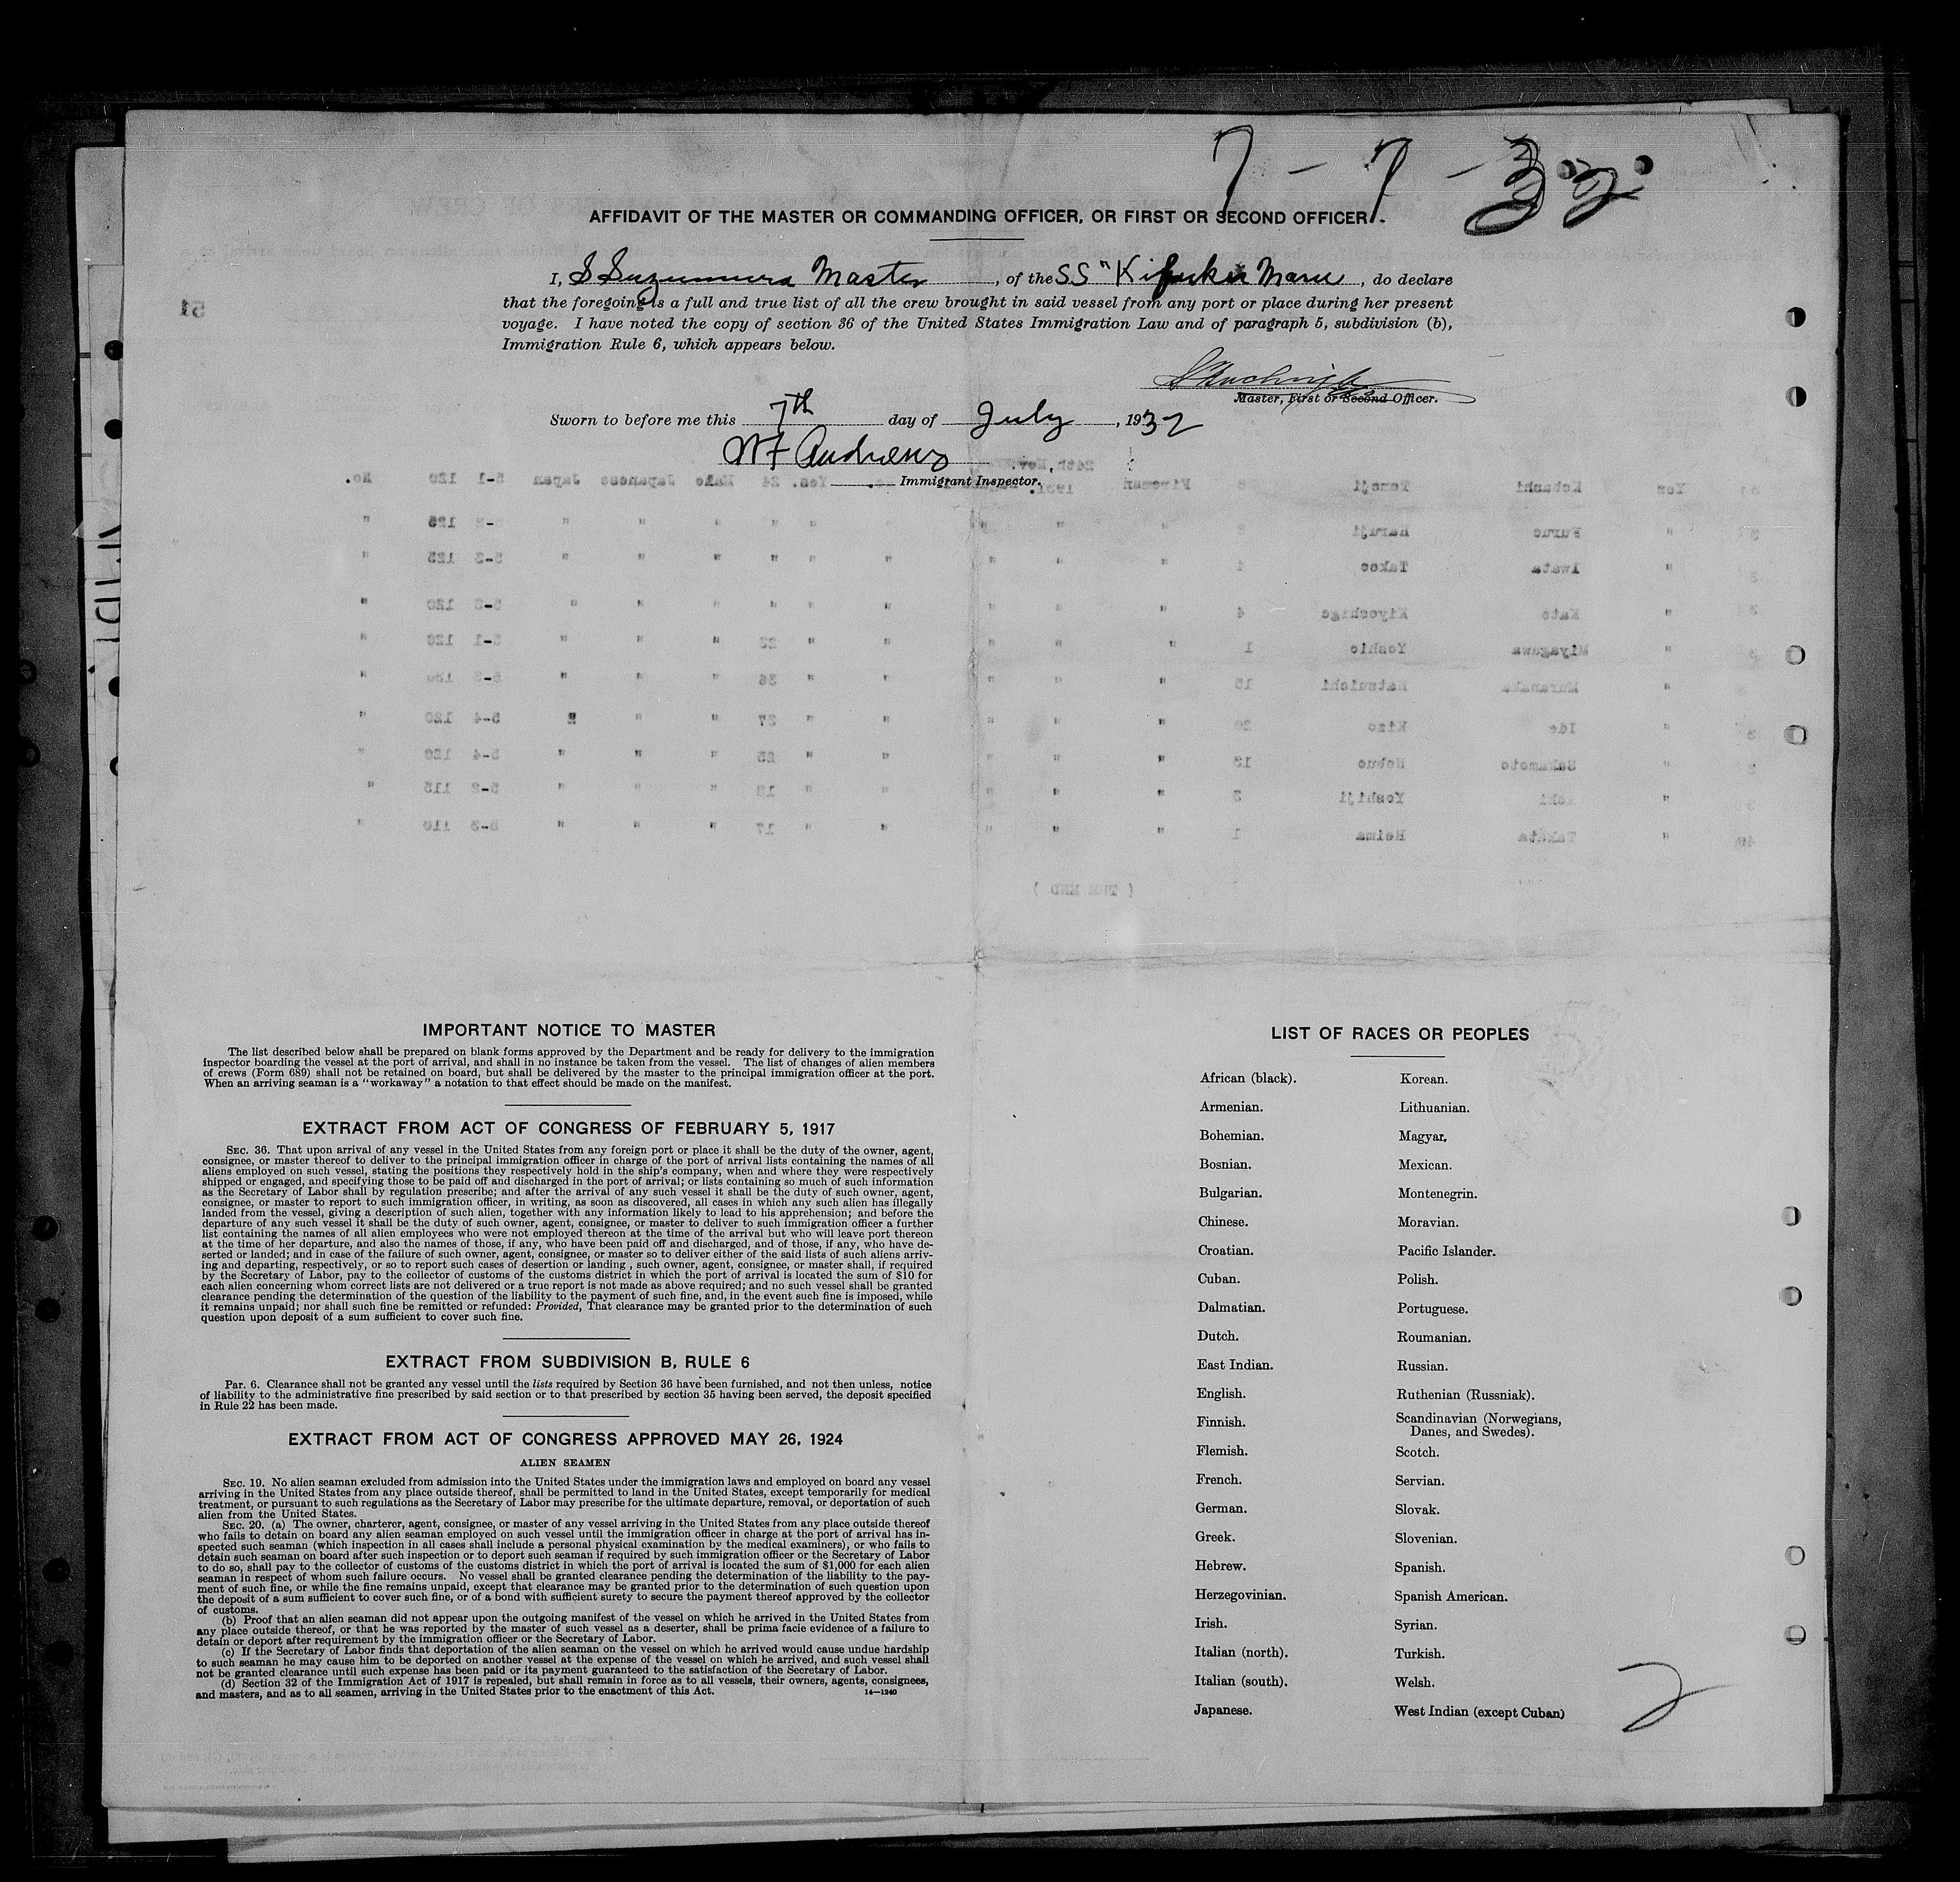 7 - 7 - 32
AFFIDAVIT OF THE MASTER OR COMMANDING OFFICER, OR FIRST OR SECOND OFFICER
I, S Suzumura Master, of the SS "Kifuku Maru, do declare
that the foregoing is a full and true list of all the crew brought in said vessel from any port or place during her present
voyage. I have noted the copy of section 36 of the United States Immigration Law and of paragraph 5, subdivision (b),
Immigration Rule 6, which appears below.
Master, First or Second Officer.
Sworn to before me this 7th day of July, 1932
Andrews
Immigrant Inspector.
51
Yes Kobashi Tomoji Fireman Yes. 24 Male Japanese Japan 5-1 120 No.
" Furue Haruji 8 " " " " " " " 125 "
" Iwata Takeo 1 " " " " " " " " 5-3 125 "
" Kato Kiyoshige 4 " " " " " " " " 5-3 120 "
" Miyagawa Yoshio 1 " " " " " 22 " " " 5-1 120 "
" Muranaka Hatsuichi 15 " " " " " 36 " " " 5-3 "
" Ide Kizo 20 " " " " " 37 " " " 5-4 120 "
" Sakamoto Nobuo 13 " " " " " 25 " " " 5-4 120 "
" Yoshiji 3 " " " " " 18 " " " 5-2 115 "
40 " Takata Heima 1 " " " " " 17 " " " 5-3 110 "
( THE END )
IMPORTANT NOTICE TO MASTER
The list described below shall be prepared on blank forms approved by the Department and be ready for delivery to the immigration
inspector boarding the vessel at the port of arrival, and shall in no instance be taken from the vessel. The list of changes of alien members
of crews (Form 689) shall not be retained on board, but shall be delivered by the master to the principal immigration officer at the port.
When an arriving seaman is a "workaway" a notation to that effect should be made on the manifest.
EXTRACT FROM ACT OF CONGRESS OF FEBRUARY 5, 1917
SEC. 36. That upon arrival of any vessel in the United States from any foreign port or place it shall be the duty of the owner, agent,
consignee, or master thereof to deliver to the principal immigration officer in charge of the port of arrival lists containing the names of all
aliens employed on such vessel, stating the positions they respectively hold in the ship's company, when and where they were respectively
shipped or engaged, and specifying those to be paid off and discharged in the port of arrival; or lists containing so much of such information
as the Secretary of Labor shall by regulation prescribe; and after the arrival of any such vessel it shall be the duty of such owner, agent,
consignee, or master to report to such immigration officer, in writing, as soon as discovered, all cases in which any such alien has illegally
landed from the vessel, giving a description of such alien, together with any information likely to lead to his apprehension; and before the
departure of any such vessel it shall be the duty of such owner, agent, consignee, or master to deliver to such immigration officer a further
list containing the names of all alien employees who were not employed thereon at the time of the arrival but who will leave port thereon
at the time of her departure, and also the names of those, if any, who have been paid off and discharged, and of those, if any, who have de-
serted or landed; and in case of the failure of such owner, agent, consignee, or master so to deliver either of the said lists of such aliens arriv-
ing and departing, respectively, or so to report such cases of desertion or landing , such owner, agent, consignee, or master shall, if required
by the Secretary of Labor, pay to the collector of customs of the customs district in which the port of arrival is located the sum of $10 for
each alien concerning whom correct lists are not delivered or a true report is not made as above required; and no such vessel shall be granted
clearance pending the determination of the question of the liability to the payment of such fine, and, in the event such fine is imposed, while
it remains unpaid; nor shall such fine be remitted or refunded: Provided, That clearance may be granted prior to the determination of such
question upon deposit of a sum sufficient to cover such fine.
EXTRACT FROM SUBDIVISION B, RULE 6
PAR. 6. Clearance shall not be granted any vessel until the lists required by Section 36 have been furnished, and not then unless, notice
of liability to the administrative fine prescribed by said section or to that prescribed by section 35 having been served, the deposit specified
in Rule 22 has been made.
EXTRACT FROM ACT OF CONGRESS APPROVED MAY 26, 1924
ALIEN SEAMEN
SEC. 19. No alien seaman excluded from admission into the United States under the immigration laws and employed on board any vessel
arriving in the United States from any place outside thereof, shall be permitted to land in the United States, except temporarily for medical
treatment, or pursuant to such regulations as the Secretary of Labor may prescribe for the ultimate departure, removal, or deportation of such
alien from the United States.
SEC. 20. (a) The owner, charterer, agent, consignee, or master of any vessel arriving in the United States from any place outside thereof
who fails to detain on board any alien seaman employed on such vessel until the immigration officer in charge at the port of arrival has in-
spected such seaman (which inspection in all cases shall include a personal physical examination by the medical examiners), or who fails to
detain such seaman on board after such inspection or to deport such seaman if required by such immigration officer or the Secretary of Labor
to do so, shall pay to the collector of customs of the customs district in which the port of arrival is located the sum of $1,000 for each alien
seaman in respect of whom such failure occurs. No vessel shall be granted clearance pending the determination of the liability to the pay-
ment of such fine, or while the fine remains unpaid, except that clearance may be granted prior to the determination of such question upon
the deposit of a sum sufficient to cover such fine, or of a bond with sufficient surety to secure the payment thereof approved by the collector
of customs.
(b) Proof that an alien seaman did not appear upon the outgoing manifest of the vessel on which he arrived in the United States from
any place outside thereof, or that he was reported by the master of such vessel as a deserter, shall be prima facie evidence of a failure to
detain or deport after requirement by the immigration officer or the Secretary of Labor.
(c) If the Secretary of Labor finds that deportation of the alien seaman on the vessel on which he arrived would cause undue hardship
to such seaman he may cause him to be deported on another vessel at the expense of the vessel on which he arrived, and such vessel shall
not be granted clearance until such expense has been paid or its payment guaranteed to the satisfaction of the Secretary of Labor.
(d) Section 32 of the Immigration Act of 1917 is repealed, but shall remain in force as to all vessels, their owners, agents, consignees,
and masters, and as to all seamen, arriving in the United States prior to the enactment of this Act.
14—1240
LIST OF RACES OR PEOPLES
African (black). Korean.
Armenian. Lithuanian.
Bohemian. Magyar.
Bosnian. Mexican.
Bulgarian. Montenegrin.
Chinese. Moravian.
Croatian. Pacific Islander.
Cuban. Polish.
Dalmatian. Portuguese.
Dutch. Roumanian.
East Indian. Russian.
English. Ruthenian (Russniak).
Finnish. Scandinavian (Norwegians,
Danes, and Swedes).
Flemish. Scotch.
French. Servian.
German. Slovak.
Greek. Slovenian.
Hebrew. Spanish.
Herzegovinian. Spanish American.
Irish. Syrian.
Italian (north). Turkish.
Italian (south). Welsh.
Japanese. West Indian (except Cuban)
2